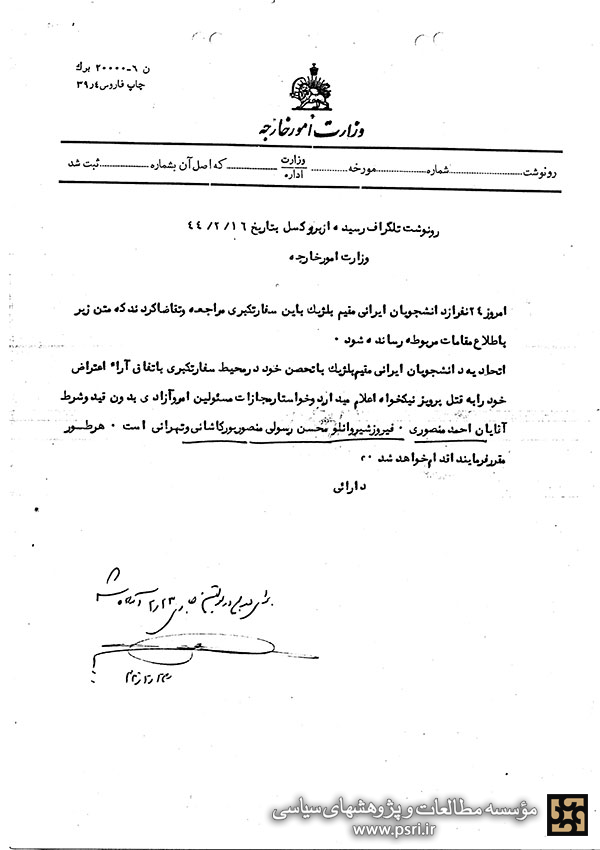 ن ٦-٢٠٠٠٠ برگ
چاپ فاروس ٣٩ر٤
وزارت امور خارجه
رونوشت ........ شماره ........ مورخه ........ وزارت ........ که اصل آن بشماره ........ ثبت شد
اداره
رونوشت تلگراف رسیده از بروکسل بتاریخ ٤٤/٢/١٦
وزارت امور خارجه
امروز ٢٤ نفر از دانشجویان ایرانی مقیم بلژیک باین سفارتکبری مراجعه و تقاضا کردند که متن زیر
باطلاع مقامات مربوطه رسانده شود ٠
اتحادیه دانشجویان ایرانی مقیم بلژیک با تحصن خود در محیط سفارتکبری باتفاق آراء اعتراض
خود را به قتل پرویز نیکخواه اعلام میدارد و خواستار مجازات مسئولین امر و آزادی بدون قید و شرط
آقایان احمد منصوری ٠ فیروز شیروانلو محسن رسولی منصور پورکاشانی و تهرانی است ٠ هر طور
مقرر فرمایند اقدام خواهد شد ٢٠
دارائی
مؤسسه مطالعات و پژوهشهای سیاسی
www.psri.ir